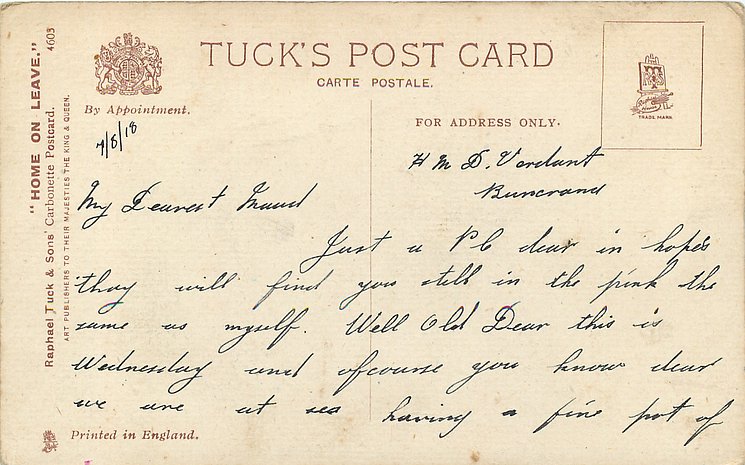 TUCK'S POST CARD
CARTE POSTALE.
By Appointment.
FOR ADDRESS ONLY.
TRADE MARK
"HOME ON LEAVE." 4603
Raphael Tuck & Sons' Carbonette Postcard.
ART PUBLISHERS TO THEIR MAJESTIES THE KING & QUEEN.
7/8/18
H M D. Verdant
Buncrana
My Dearest Maud
Just a PC dear in hopes
thay will find you still in the pink the
same as myself. Well Old Dear this is
Wednesday and ofcourse you know dear
we are at sea having a fine pot of
Printed in England.